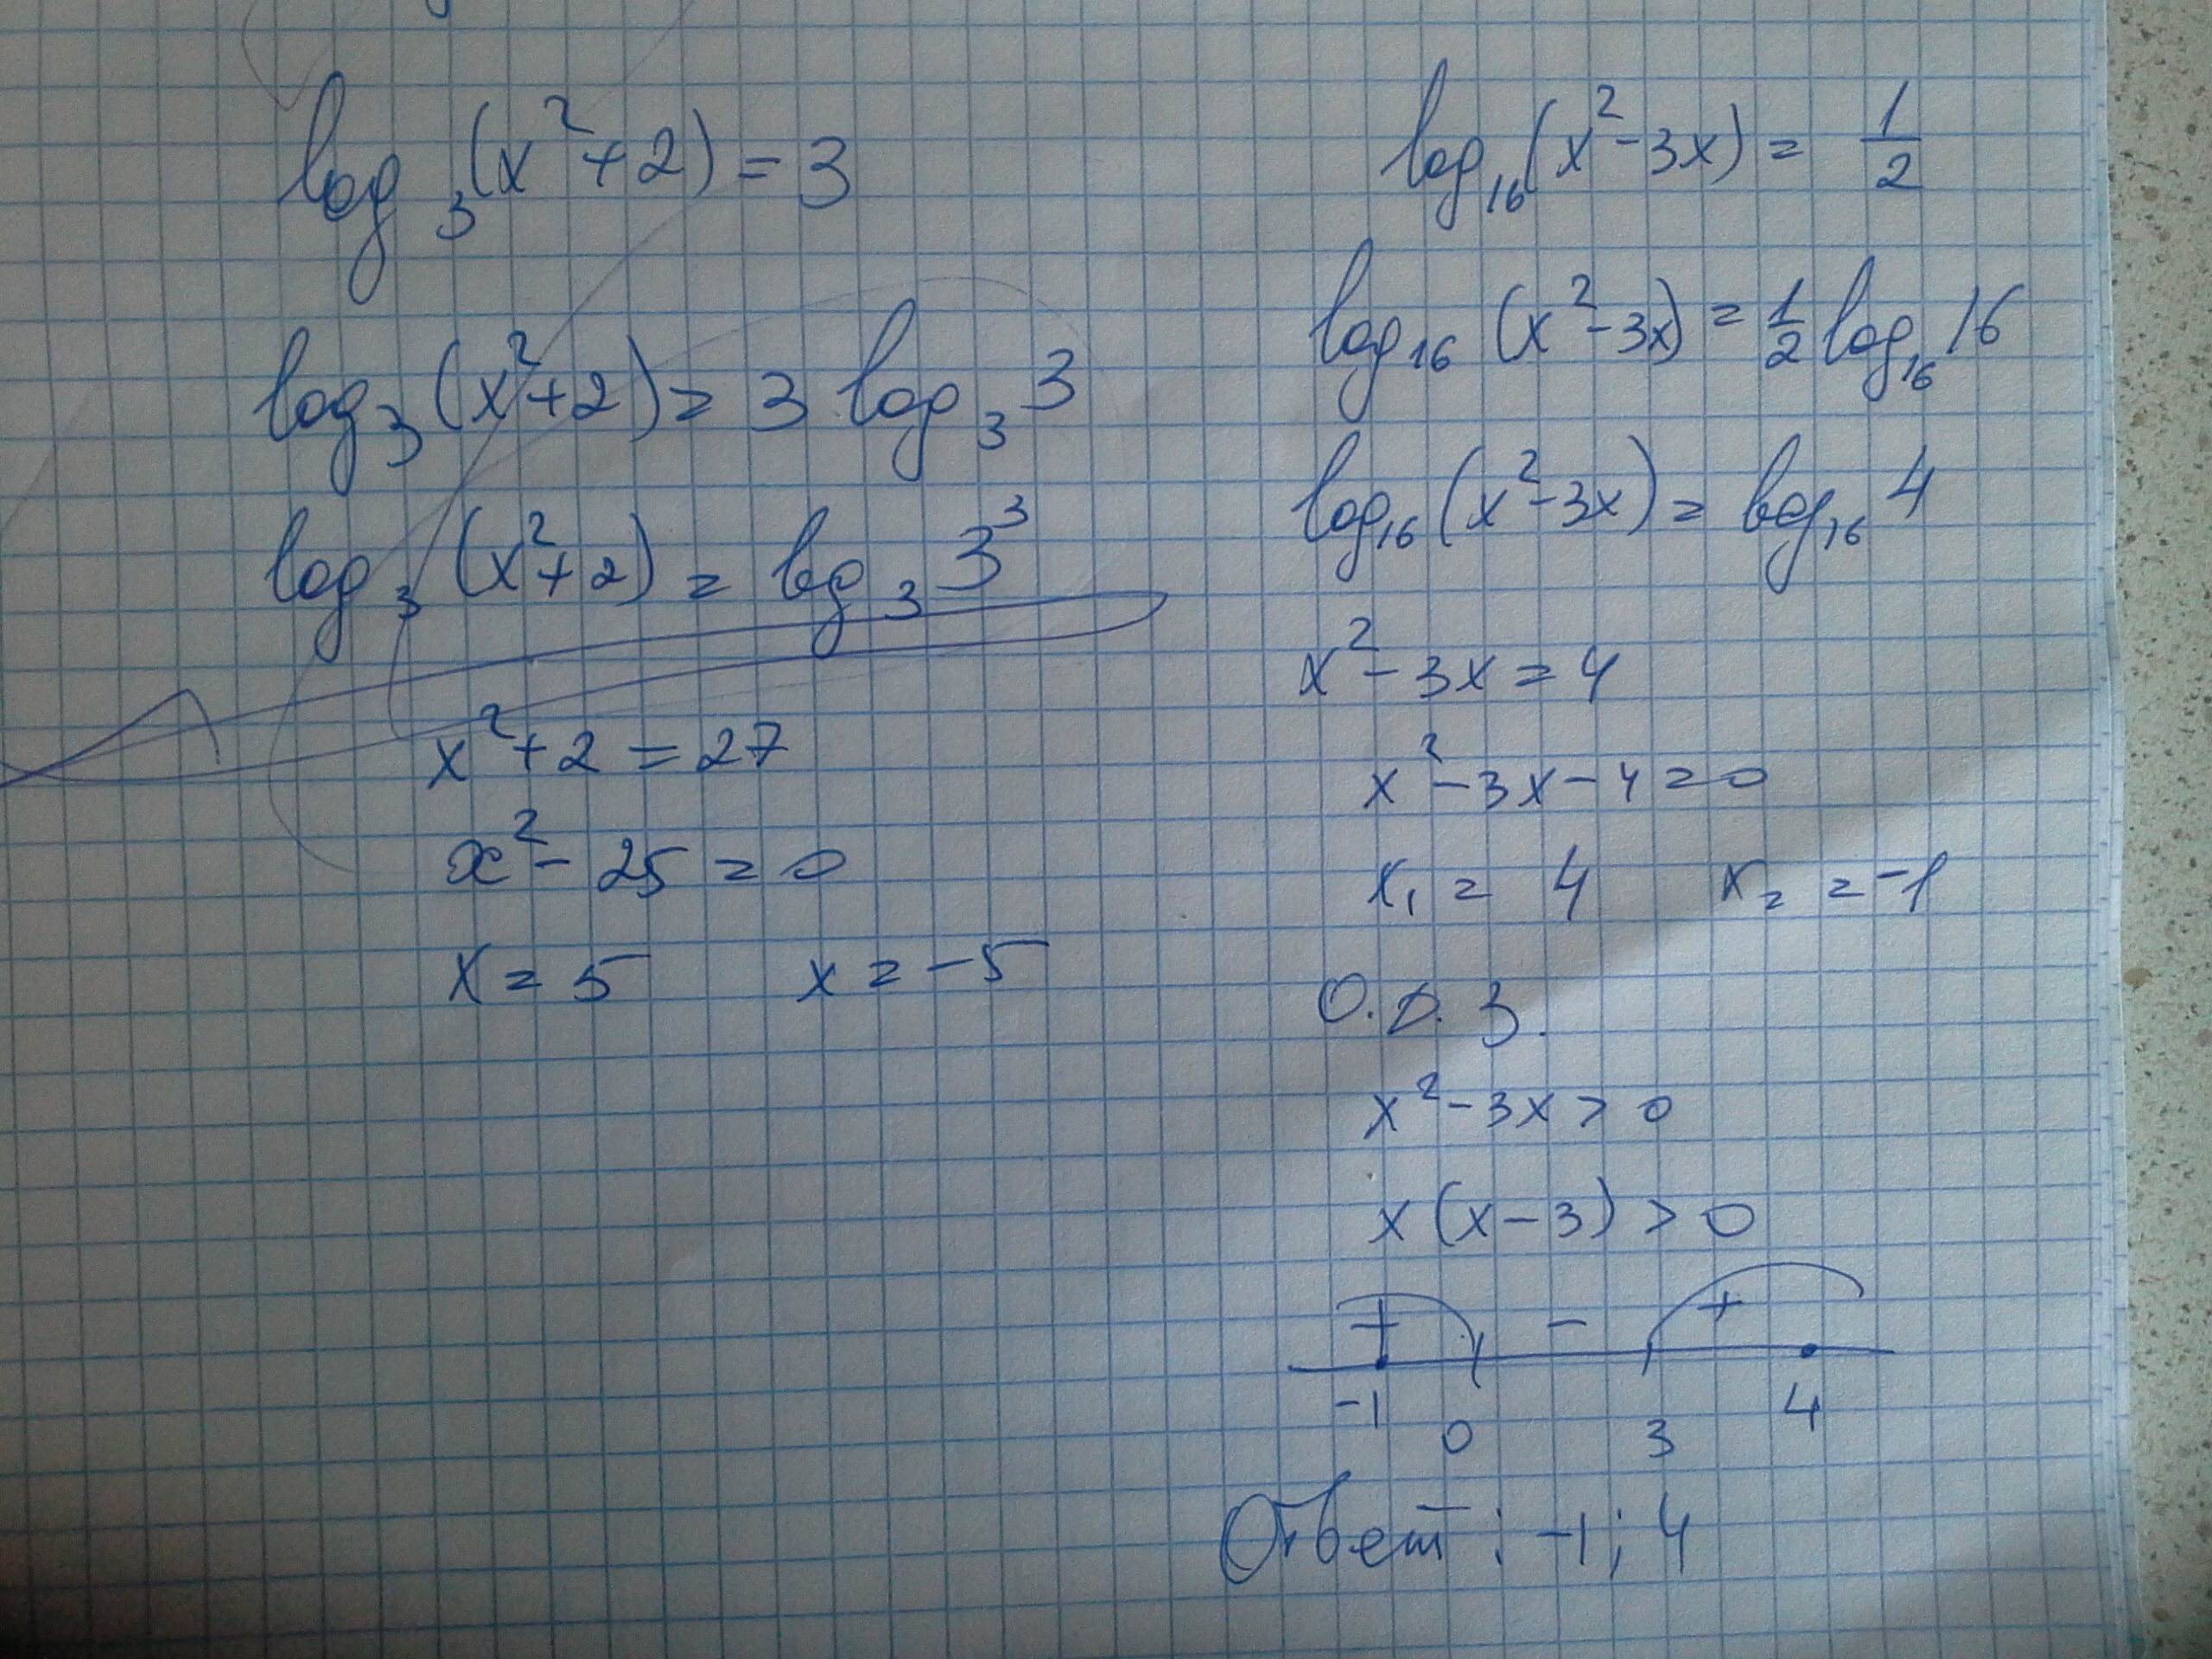 log₃(x²+2) = 3
log₃(x²+2) = 3 log₃ 3
log₃(x²+2) = log₃ 3³
x²+2 = 27
x² - 25 = 0
x = 5 x = -5
log₁₆(x²-3x) = 1/2
log₁₆(x²-3x) = 1/2 log₁₆ 16
log₁₆(x²-3x) = log₁₆ 4
x² - 3x = 4
x² - 3x - 4 = 0
x₁ = 4 x₂ = -1
О.Д.З.
x² - 3x > 0
x(x-3) > 0
+ - +
-1 0 3 4
Ответ: -1; 4